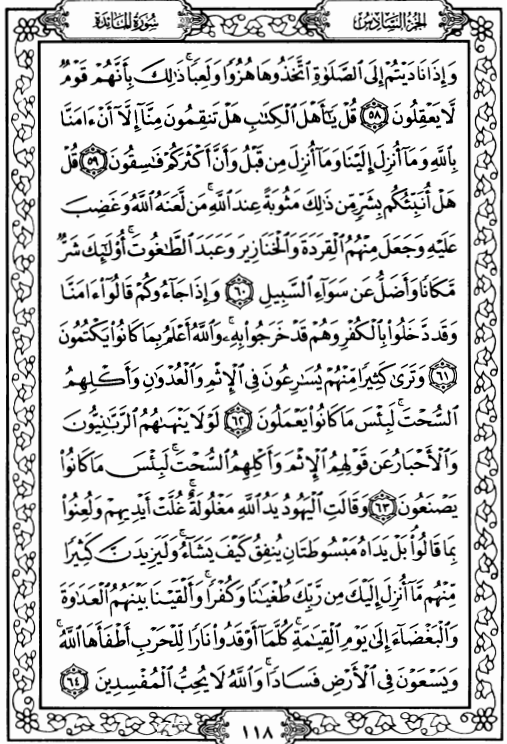 الجزء السادس
سورة المائدة
وَإِذَا نَادَيْتُمْ إِلَى ٱلصَّلَوٰةِ ٱتَّخَذُوهَا هُزُوًا وَلَعِبًا ۚ ذَٰلِكَ بِأَنَّهُمْ قَوْمٌ
لَّا يَعْقِلُونَ ٥٨ قُلْ يَٰٓأَهْلَ ٱلْكِتَٰبِ هَلْ تَنقِمُونَ مِنَّآ إِلَّآ أَنْ ءَامَنَّا
بِٱللَّهِ وَمَآ أُنزِلَ إِلَيْنَا وَمَآ أُنزِلَ مِن قَبْلُ وَأَنَّ أَكْثَرَكُمْ فَٰسِقُونَ ٥٩ قُلْ
هَلْ أُنَبِّئُكُم بِشَرٍّ مِّن ذَٰلِكَ مَثُوبَةً عِندَ ٱللَّهِ ۚ مَن لَّعَنَهُ ٱللَّهُ وَغَضِبَ
عَلَيْهِ وَجَعَلَ مِنْهُمُ ٱلْقِرَدَةَ وَٱلْخَنَازِيرَ وَعَبَدَ ٱلطَّٰغُوتَ ۚ أُو۟لَٰٓئِكَ شَرٌّ
مَّكَانًا وَأَضَلُّ عَن سَوَآءِ ٱلسَّبِيلِ ٦٠ وَإِذَا جَآءُوكُمْ قَالُوٓا۟ ءَامَنَّا
وَقَد دَّخَلُوا۟ بِٱلْكُفْرِ وَهُمْ قَدْ خَرَجُوا۟ بِهِۦ ۚ وَٱللَّهُ أَعْلَمُ بِمَا كَانُوا۟ يَكْتُمُونَ
٦١ وَتَرَىٰ كَثِيرًا مِّنْهُمْ يُسَٰرِعُونَ فِى ٱلْإِثْمِ وَٱلْعُدْوَٰنِ وَأَكْلِهِمُ
ٱلسُّحْتَ ۚ لَبِئْسَ مَا كَانُوا۟ يَعْمَلُونَ ٦٢ لَوْلَا يَنْهَىٰهُمُ ٱلرَّبَّٰنِيُّونَ
وَٱلْأَحْبَارُ عَن قَوْلِهِمُ ٱلْإِثْمَ وَأَكْلِهِمُ ٱلسُّحْتَ ۚ لَبِئْسَ مَا كَانُوا۟
يَصْنَعُونَ ٦٣ وَقَالَتِ ٱلْيَهُودُ يَدُ ٱللَّهِ مَغْلُولَةٌ ۚ غُلَّتْ أَيْدِيهِمْ وَلُعِنُوا۟
بِمَا قَالُوا۟ ۘ بَلْ يَدَاهُ مَبْسُوطَتَانِ يُنفِقُ كَيْفَ يَشَآءُ ۚ وَلَيَزِيدَنَّ كَثِيرًا
مِّنْهُم مَّآ أُنزِلَ إِلَيْكَ مِن رَّبِّكَ طُغْيَٰنًا وَكُفْرًا ۚ وَأَلْقَيْنَا بَيْنَهُمُ ٱلْعَدَٰوَةَ
وَٱلْبَغْضَآءَ إِلَىٰ يَوْمِ ٱلْقِيَٰمَةِ ۚ كُلَّمَآ أَوْقَدُوا۟ نَارًا لِّلْحَرْبِ أَطْفَأَهَا ٱللَّهُ ۚ
وَيَسْعَوْنَ فِى ٱلْأَرْضِ فَسَادًا ۚ وَٱللَّهُ لَا يُحِبُّ ٱلْمُفْسِدِينَ ٦٤
١١٨